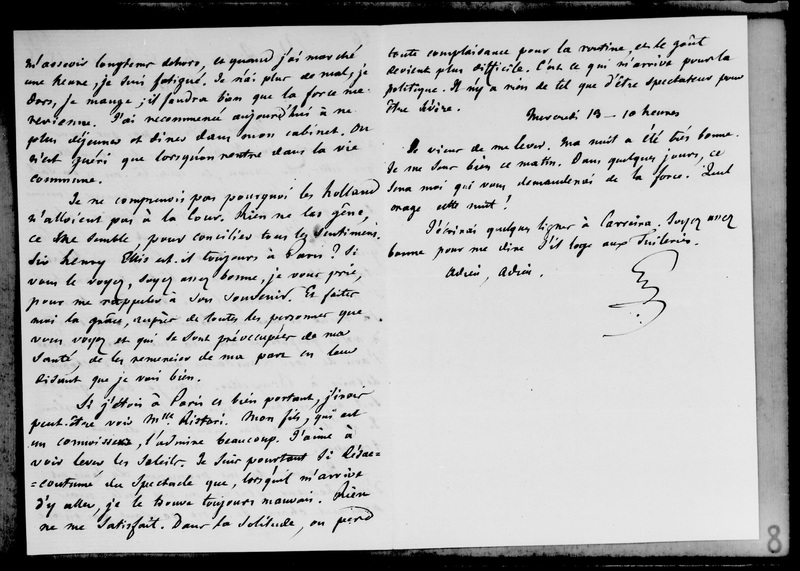 m'asseoir longtems dehors, et quand j'ai marché
une heure, je suis fatigué. Je n'ai plus de mal, je
dors, je mange ; il faudra bien que la force me
revienne. J'ai recommencé aujourd'hui à ne
plus déjeuner et diner dans mon cabinet. On
n'est guéri que lorsqu'on rentre dans la vie
commune.
Je ne comprenois pas pourquoi les Holland
n'alloient pas à la Cour. Rien ne les gêne,
ce me semble, pour concilier tous les sentimens.
Sir Henry Ellis est-il toujours à Paris ? Si
vous le voyez, soyez assez bonne, je vous prie,
pour me rappeler à son souvenir. Et faites
moi la grâce, auprès de toutes les personnes que
vous voyez et qui se sont préoccupées de ma
santé, de les remercier de ma part en leur
disant que je vais bien.
Si j'étois à Paris et bien portant, j'irois
peut-être voir Mlle Ristori. Mon fils, qui est
un connoisseur, l'admire beaucoup. J'aime à
voir lever les soleils. Je suis pourtant si désac=
=coutumé du spectacle que, lorsqu'il m'arrive
d'y aller, je le trouve toujours mauvais. Rien
ne me satisfait. Dans la solitude, on perd
toute complaisance pour la routine, et le goût
devient plus difficile. C'est ce qui m'arrive pour la
politique. Il n'y a rien de tel que d'être spectateur pour
être sévère.
Mercredi 13 - 10 heures
Je viens de me lever. Ma nuit a été très bonne.
Je me sens bien ce matin. Dans quelques jours, ce
sera moi qui vous demanderai de la force. Quel
orage cette nuit !
J'écrirai quelques lignes à Carraira. Soyez assez
bonne pour me dire s'il loge aux Tuileries.
Adieu, adieu.
8